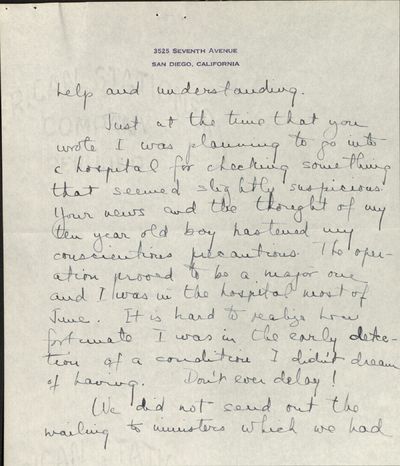 3525 SEVENTH AVENUE
SAN DIEGO, CALIFORNIA
help and understanding.
Just at the time that you
wrote I was planning to go into
a hospital for checking something
that seemed slightly suspicious.
Your news and the thought of my
ten year old boy hastened my
conscientious precautions. The oper-
ation proved to be a major one
and I was in the hospital most of
June. It is hard to realize how
fortunate I was in the early detec-
tion of a condition I didn't dream
of having. Don't ever delay!
We did not send out the
mailing to ministers which we had